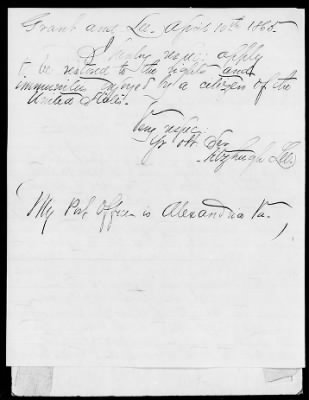 Grant and Lee. April 10th 1865.
I hereby resp: apply
to be restored to the rights and
immunities enjoyed by a citizen of the
United States.
Very respc:
Yr obt. Sev
Fitzhugh Lee
(My Post Office is Alexandria Va.)